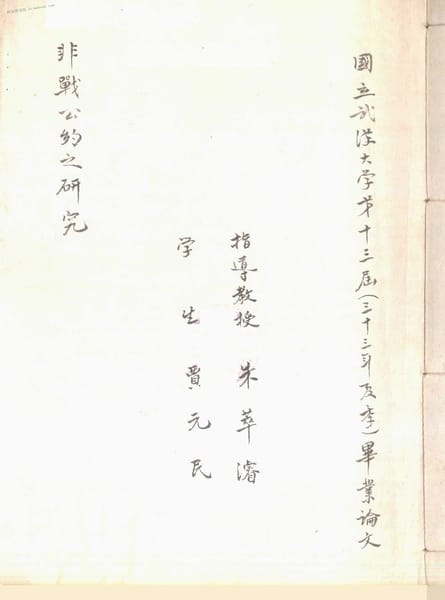 國立武漢大学第十三屆(三十三年度夏季)畢業論文
指導教授 朱萃濬
学生 賈元民
非戰公約之研究